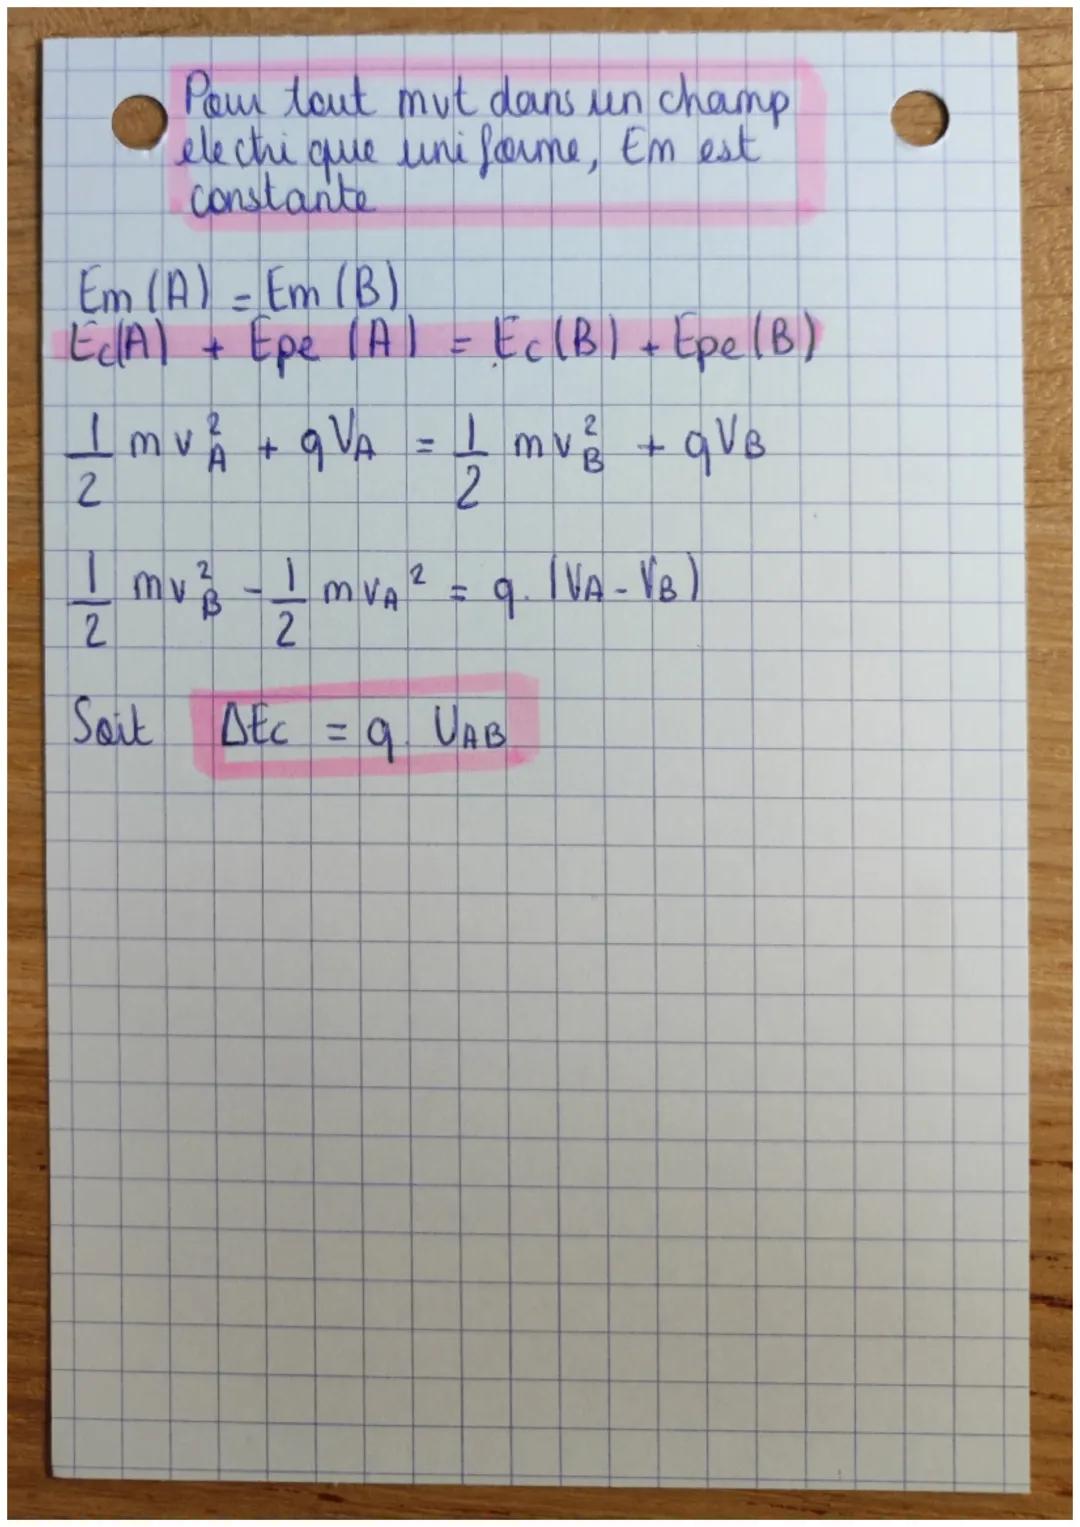 Pour tout mvt dans un champ
electrique uniforme, Em est
constante
Em (A) = Em (B)
Ec(A) + Epe (A) = Ec (B) + Epe (B)
1/2 mv_A^2 + qV_A = 1/2 mv_B^2 + qV_B
1/2 mv_B^2 - 1/2 mv_A^2 = q. (V_A - V_B)
Soit ΔEc = q. U_AB